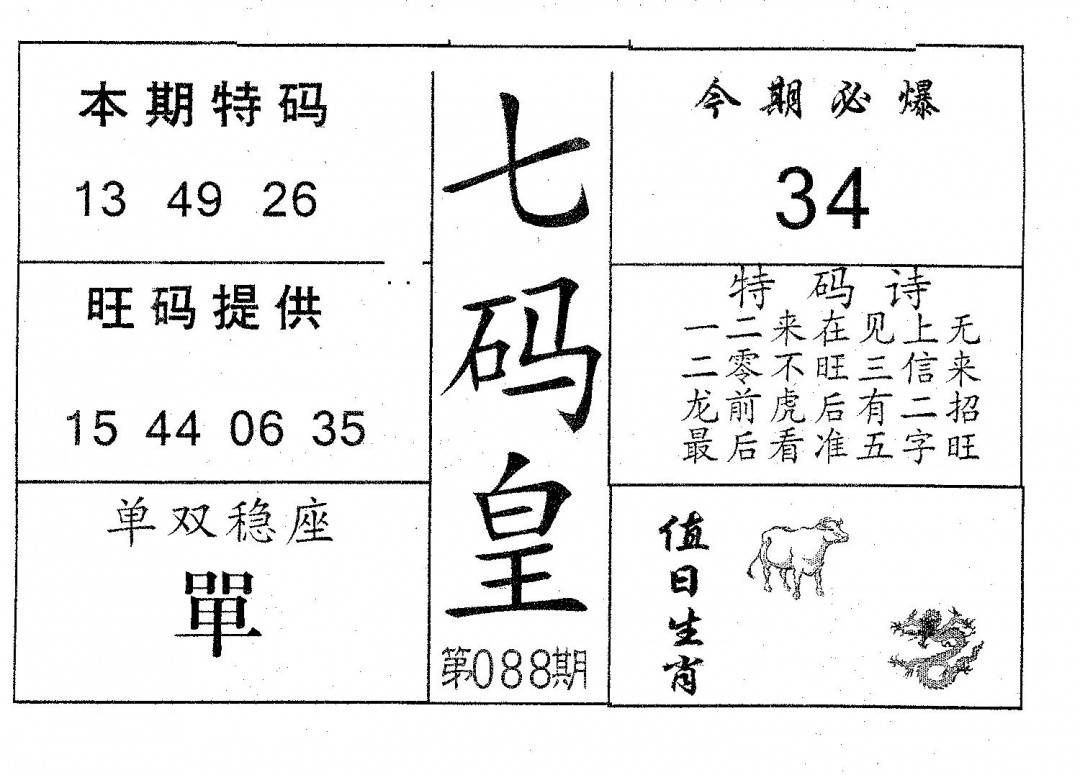 本期特码
13 49 26
旺码提供
15 44 06 35
单双稳座
單
七码皇
第088期
今期必爆
34
特码诗
一二来在见上无
二零不旺三信来
龙前虎后有二招
最后看准五字旺
值日生肖